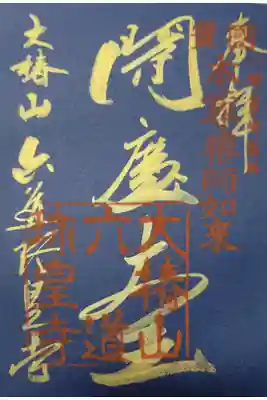 奉拝
薬師如来
閻魔大王
大椿山
六道
珍皇寺
大椿山 六道珍皇寺